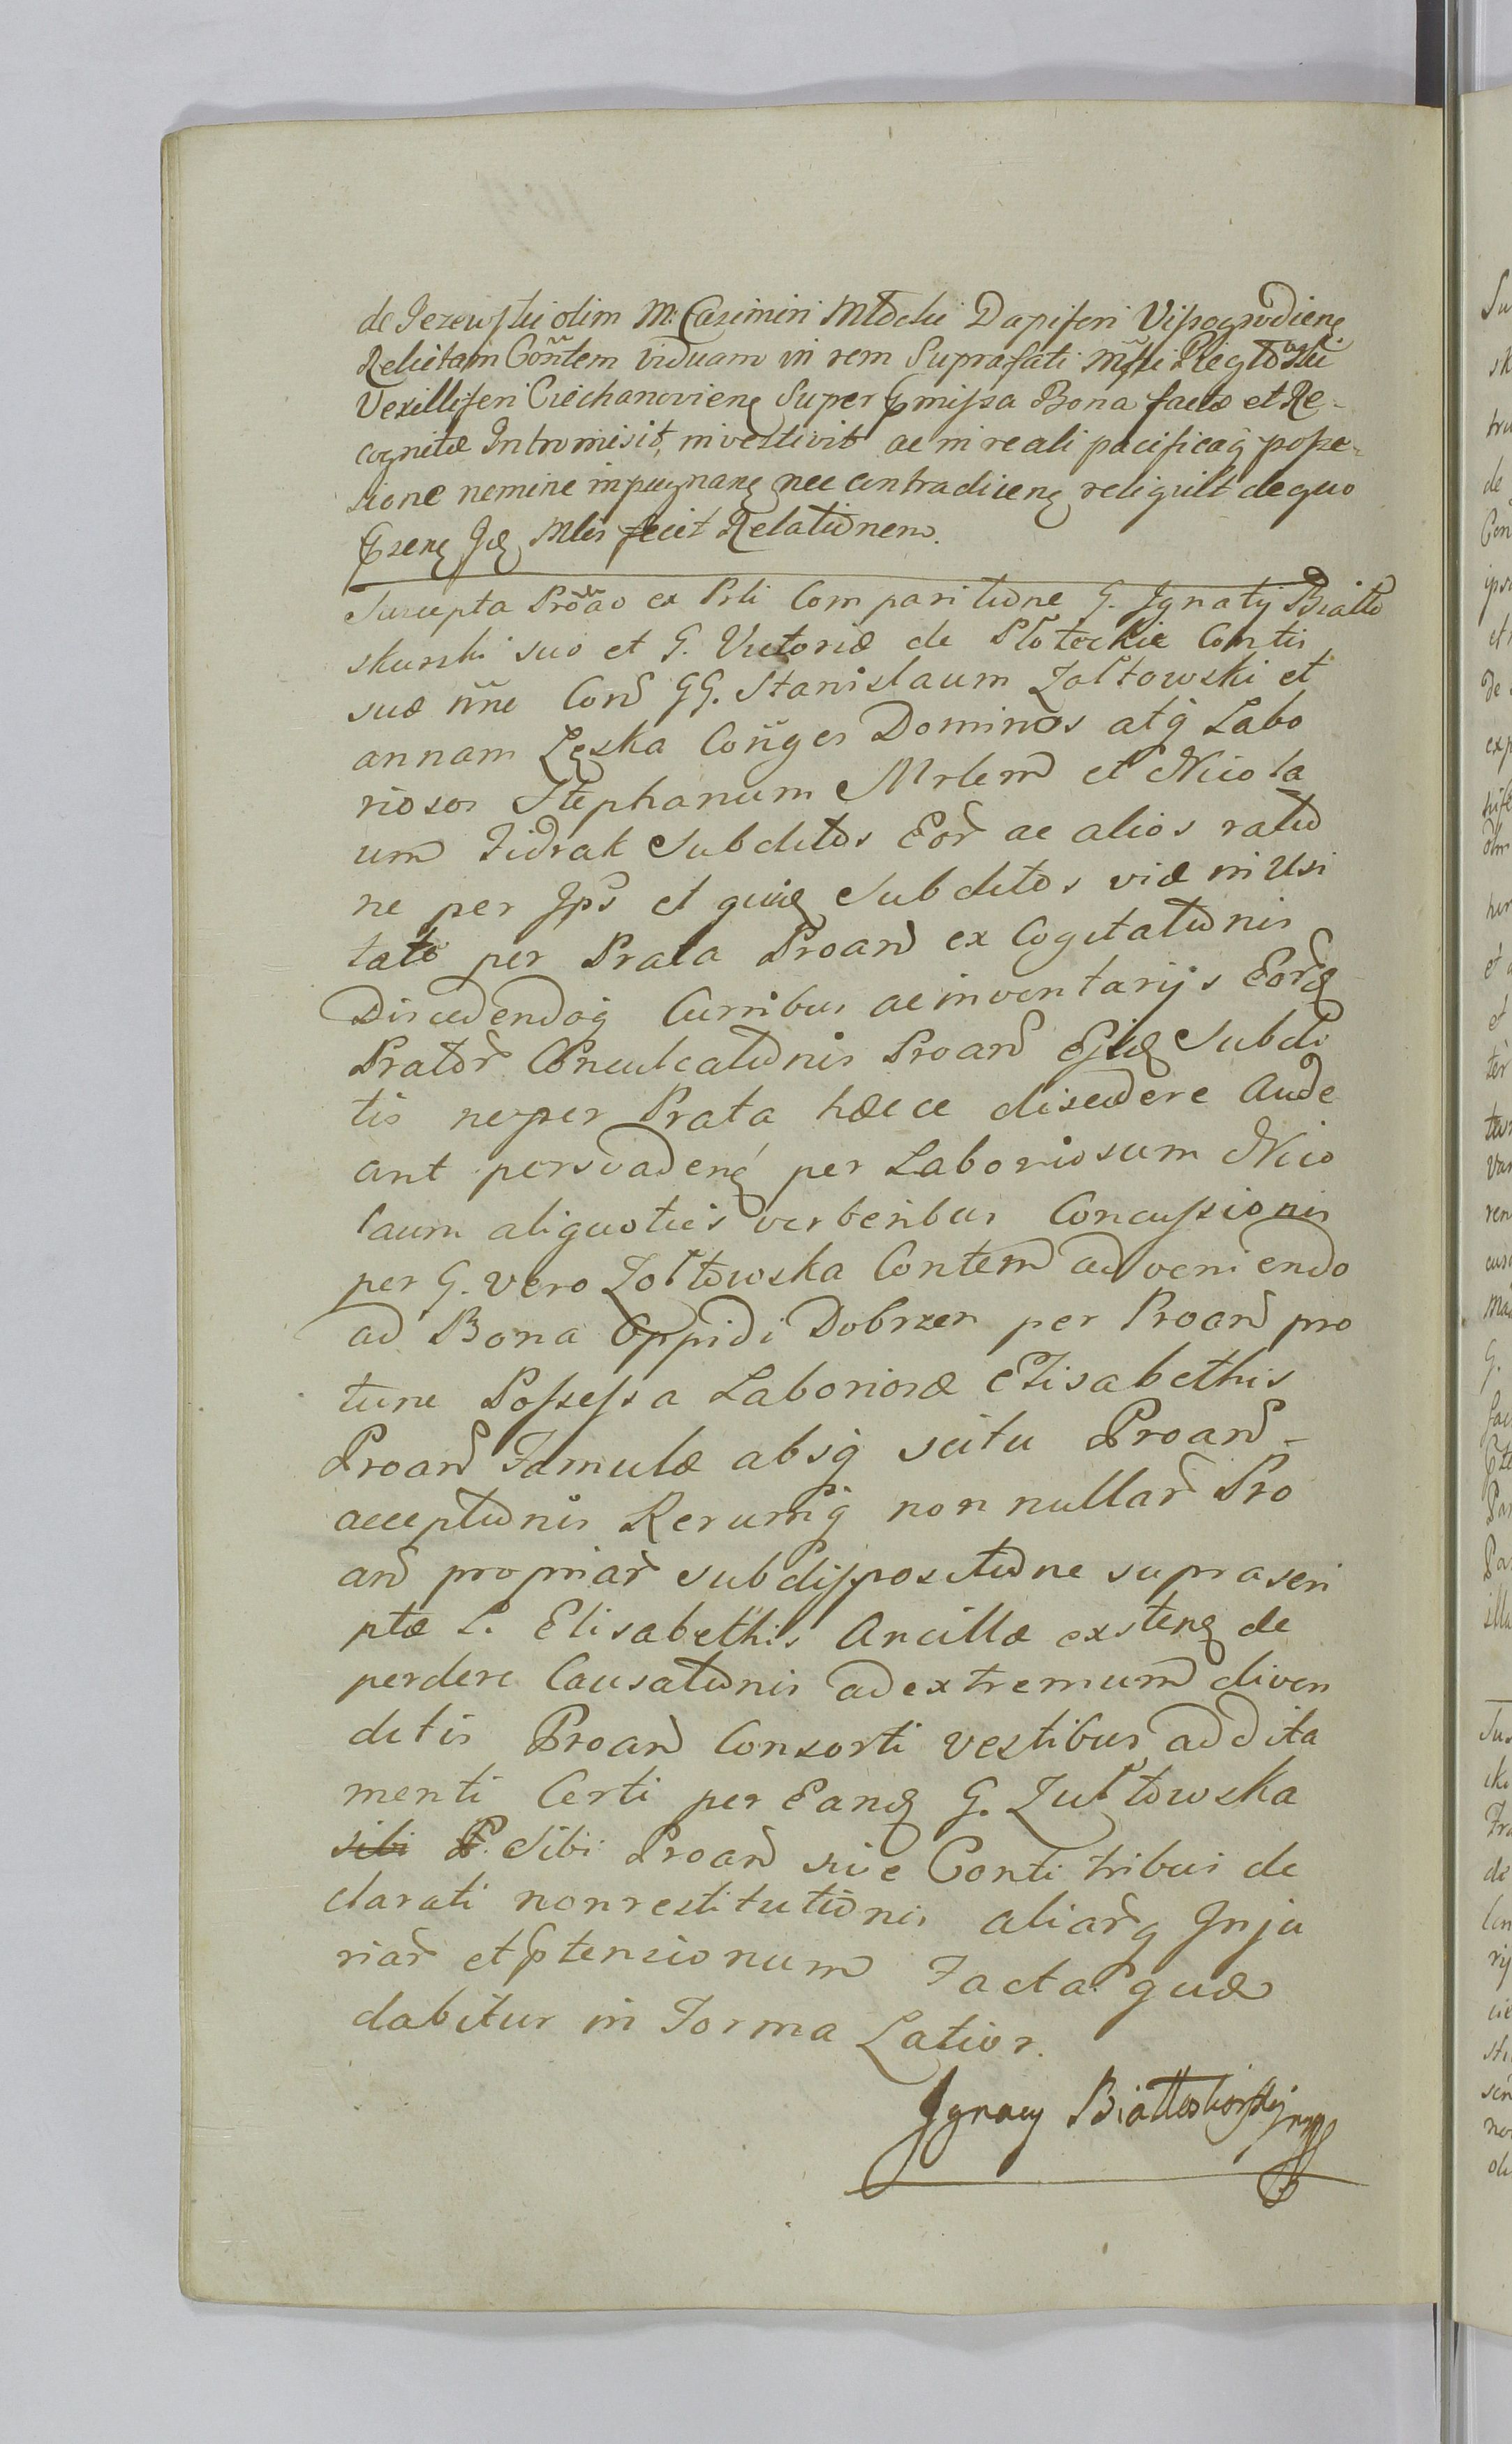 de Jezewski olim M. Casimiri Młocki Dapiferi Vissogrodieng
Relictam Con̄tem viduam in rem Suprafati Mgfci Rłowski
Vexilliferi Ciechanovieng Super Pmissa Bona factæ et Re-
cognitæ Intromisit, investivit ac in reali pacificaq̄ posse-
sione nemine inpugnanę nec contradiceng reliquit de quo
Pseng Idę Mlis fecit Relationem.
Suscepta Prōao ex Prli Comparitione G. Jgnatij Białło
skurski suo et G. Victoriæ de Płoteckie Contis
suæ n̄ne Con̄ GG. Stanislaum Zołtowski et
annam Łęska Con̄ges Dominos atq̄ Labo
riosos Stephanum Mrlem et Nicola
um Fidrak Subditos Eor̄ ac alios ratio
ne per Jps̄ et quię Subditos viæ in Usi
tato per Prata Proan̄ ex Cogitationis
Discedendoq̄ Curribus ac inventarijs Eor̄dę
Prator̄ Conculcationis Proan̄ Ejsdę Subdi
tis ne per Prata hæcce discedere Aude
ant persvadenę per Laboriosum Nico
laum aliquoties verberibus Concussionis
per G. vero Zołtowska Contem adveniendo
ad Bona Oppidi Dobrzen per Proan̄ pro
tunc Possessa Laboriosæ Elisabethis
Proan̄ Famulæ absq̄ scitu Proan̄ -
acceptionis Rerumq̄ non nullar̄ Pro
an̄ propriar̄ sub dispositione suprascri
ptæ L. Elisabethis Ancillæ exsteng de
perdere Causationis ad extremum diven
ditis Proan̄ Consorti vestibus addita
menti Certi per Eandę G. Zułtowska
sibi P. Sibi Proan̄ sive Conti tribui de
clarati non restitutionis aliar̄q Jnju
riar̄ et Ptensionum Facta quæ
dabitur in Forma Latior.
Jgnacy Białłoskorski mp